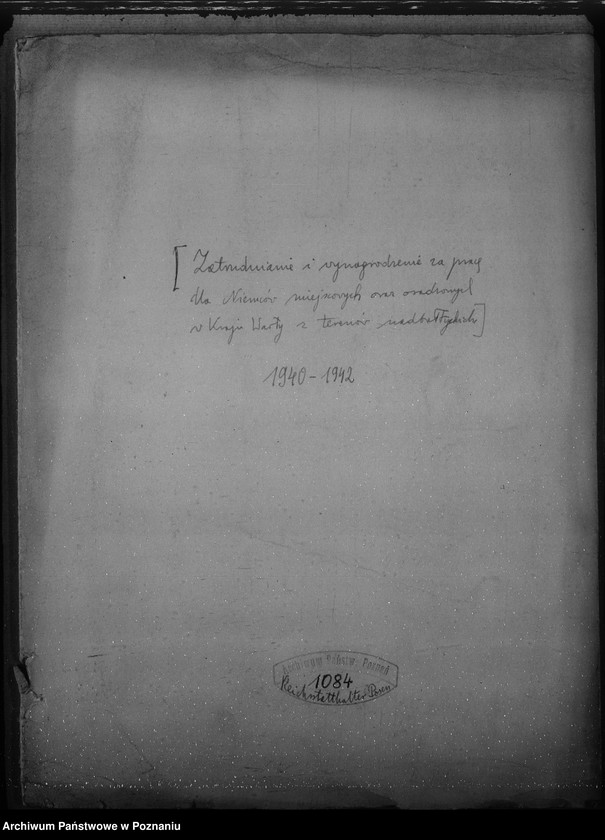 [Zatrudnianie i wynagrodzenie za pracę
dla Niemców miejscowych oraz osadzonych
w Kraju Warty z terenów nadbałtyckich]
1940-1942
Archiwum Państw. Poznań
1084
Reichsstatthalter Posen
Archiwum Państwowe w Poznaniu